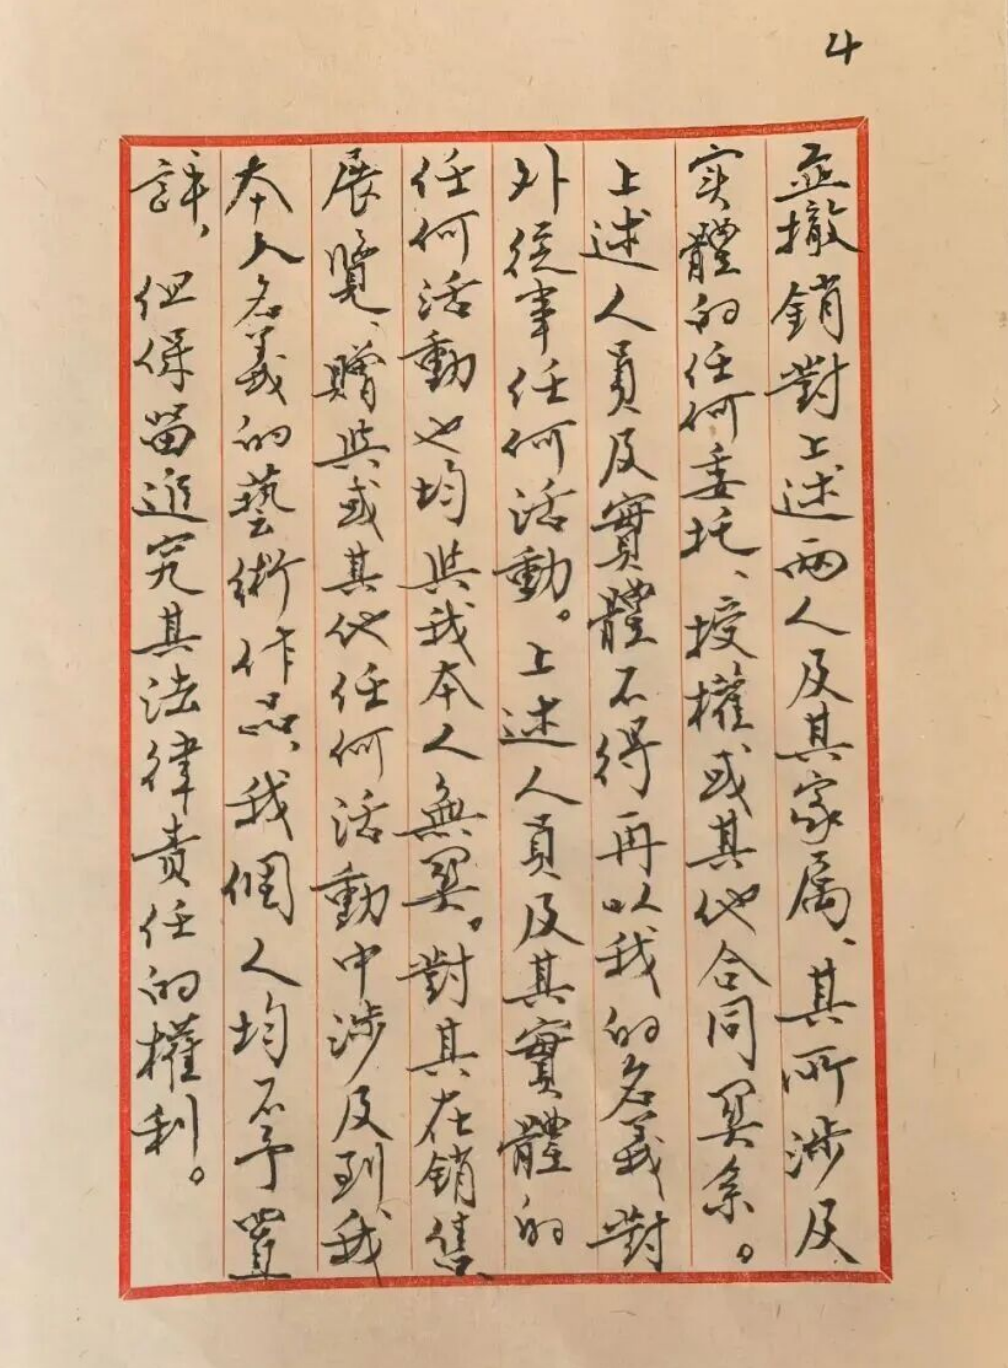 4
並撤銷對上述兩人及其家属、其所涉及
实體的任何委托、授權或其他合同関系。
上述人員及實體不得再以我的名義對
外從事任何活動。上述人員及其實體的
任何活動也均與我本人無関。對其在銷售、
展覽、贈與或其他任何活動中涉及到、我
本人名義的藝術作品、我個人均不予置
評、但保留追究其法律責任的權利。